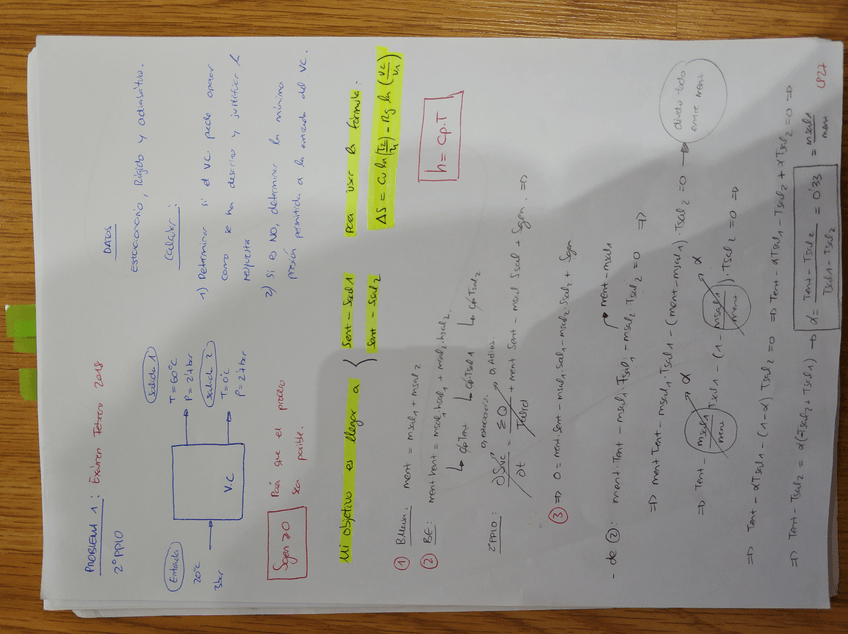 PROBLEMA 1: Examen Febrero 2018
2º PPIO
DATOS
Estacionario, Rígido y adiabático.
Entrada
20ºC
3bar
V.C
Salida 1
T=60ºC
P=2'7 bar
Salida 2
T=0ºC
P=2'7 bar
Calcular:
1) Determinar si el VC puede operar
como se ha descrito y justificar la
respuesta
2) Si es NO, determinar la mínima
presión permitida a la entrada del VC.
Sgen ≥0
Para que el proceso
sea posible.
Mi objetivo es llegar a { Sent - Ssal1
Sent - Ssal2
para usar la fórmula:
ΔS = Cv ln(T2/T1) - Rg ln(V2/V1)
① BMasa: ment = msal1 + msal2
② BE: ment·hent = msal1·hsal1 + msal2·hsal2
↳ CpTent ↳ CpTsal1 ↳ CpTsal2
h = Cp.T
2ºPPIO: ∂Svc/∂t = ΣQ/Tfrbd + ment·Sent - msal·Ssal + Sgen. ⇒
0, estacionario. 0, Adiab.
③ ⇒ 0 = ment·Sent - msal1·Ssal1 - msal2·Ssal2 + Sgen
- de ②: ment·Tent - msal1·Tsal1 - msal2·Tsal2 = 0 ⇒
ment - msal1
⇒ ment·Tent - msal1·Tsal1 - (ment - msal1)·Tsal2 = 0 → divido todo
entre ment
⇒ Tent - (msal1/ment)·Tsal1 - (1 - msal1/ment)·Tsal2 = 0 ⇒
α α
⇒ Tent - αTsal1 - (1-α)Tsal2 = 0 ⇒ Tent - αTsal1 - Tsal2 + αTsal2 = 0 ⇒
⇒ Tent - Tsal2 = α(-Tsal2 + Tsal1) ⇒ α = (Tent - Tsal2)/(Tsal1 - Tsal2) = 0'33 = msal1/ment